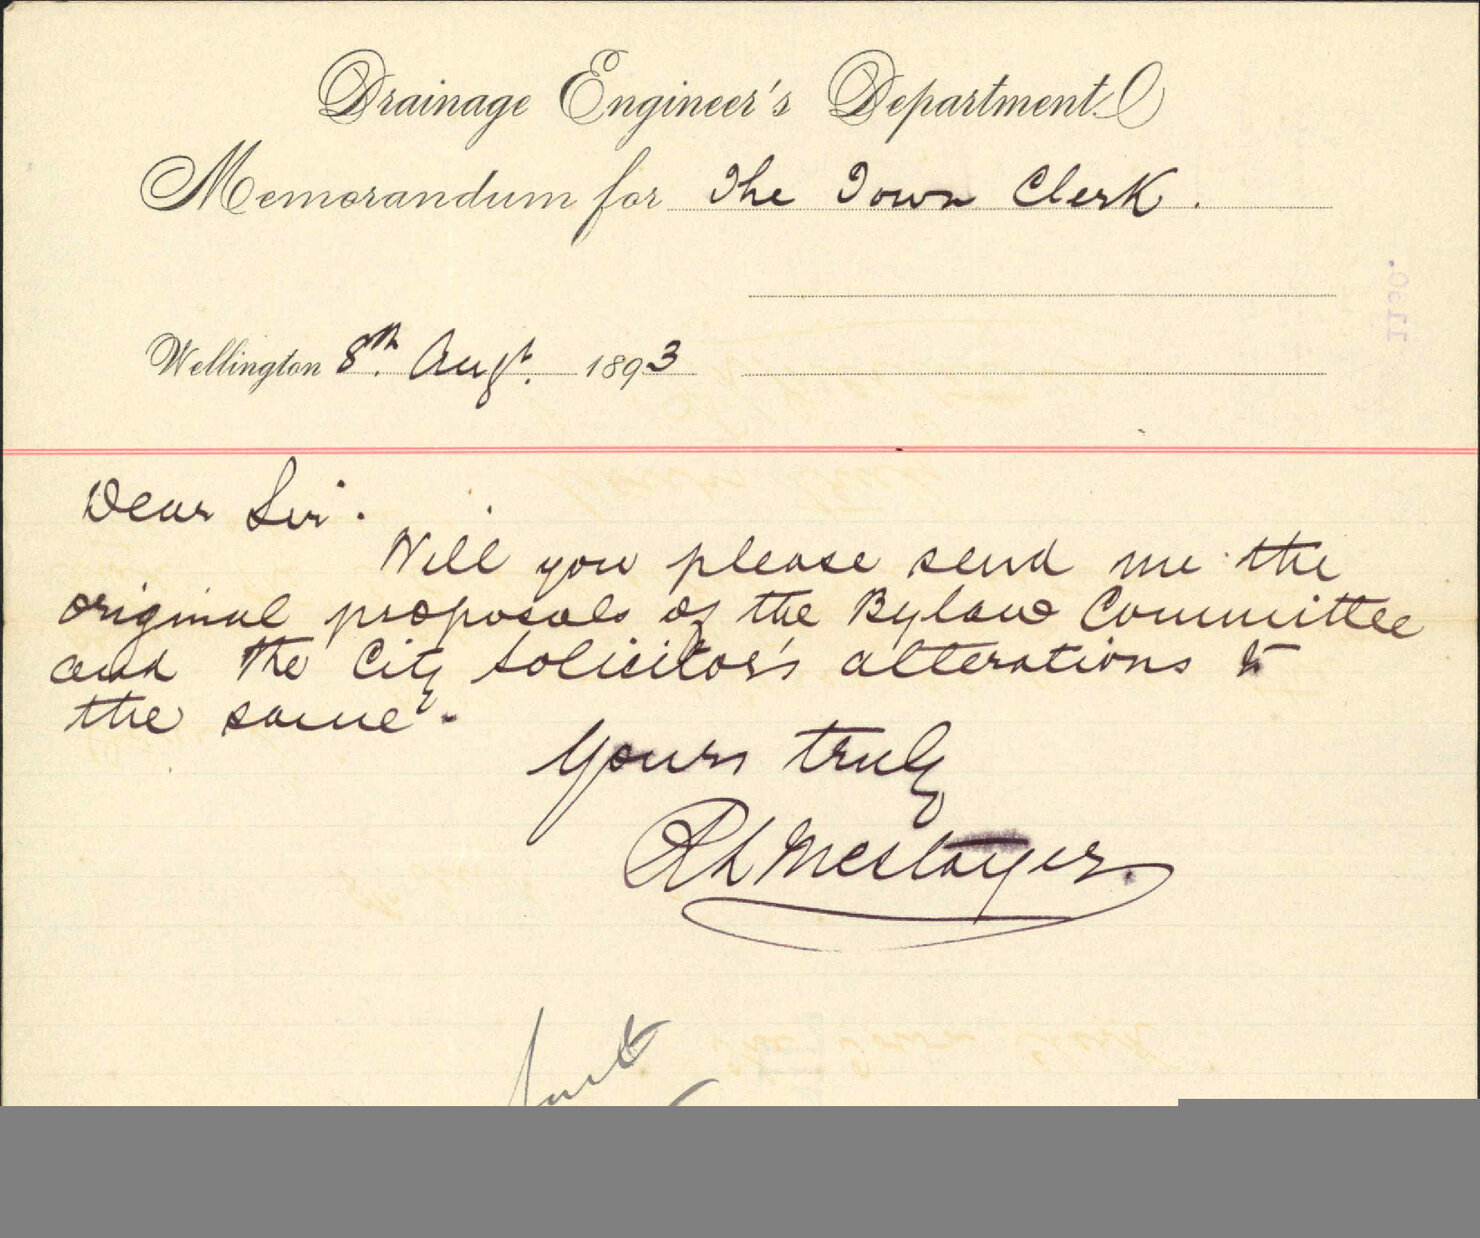 Drainage Engineer's Department.
Memorandum for The Town Clerk.
Wellington 8th. Augt. 1893
Dear Sir.
Will you please send me the
original proposals of the Bylaw Committee
and the City Solicitor's alterations to
the same.
Yours truly
R L Mestayer.